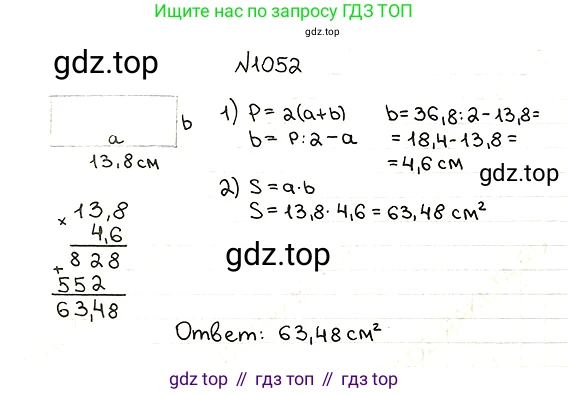 Ищите нас по запросу ГДЗ ТОП
gdz.top
gdz.top
№1052
a
b
13,8 см
1) P = 2(a+b)
b = P:2 - a
b = 36,8:2 - 13,8 =
= 18,4 - 13,8 =
= 4,6 см
gdz.top
2) S = a·b
S = 13,8 · 4,6 = 63,48 см²
× 13,8
4,6
+ 828
552
63,48
gdz.top
Ответ: 63,48 см²
gdz.top // гдз топ // гдз.top